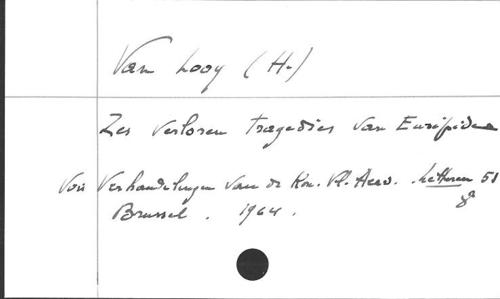 Van Looy (H.)
Zes verloren tragedies van Euripides
Voir Verhandelingen van de Kon. Vl. Acad. Letteren 51
8°
Brussel. 1964.